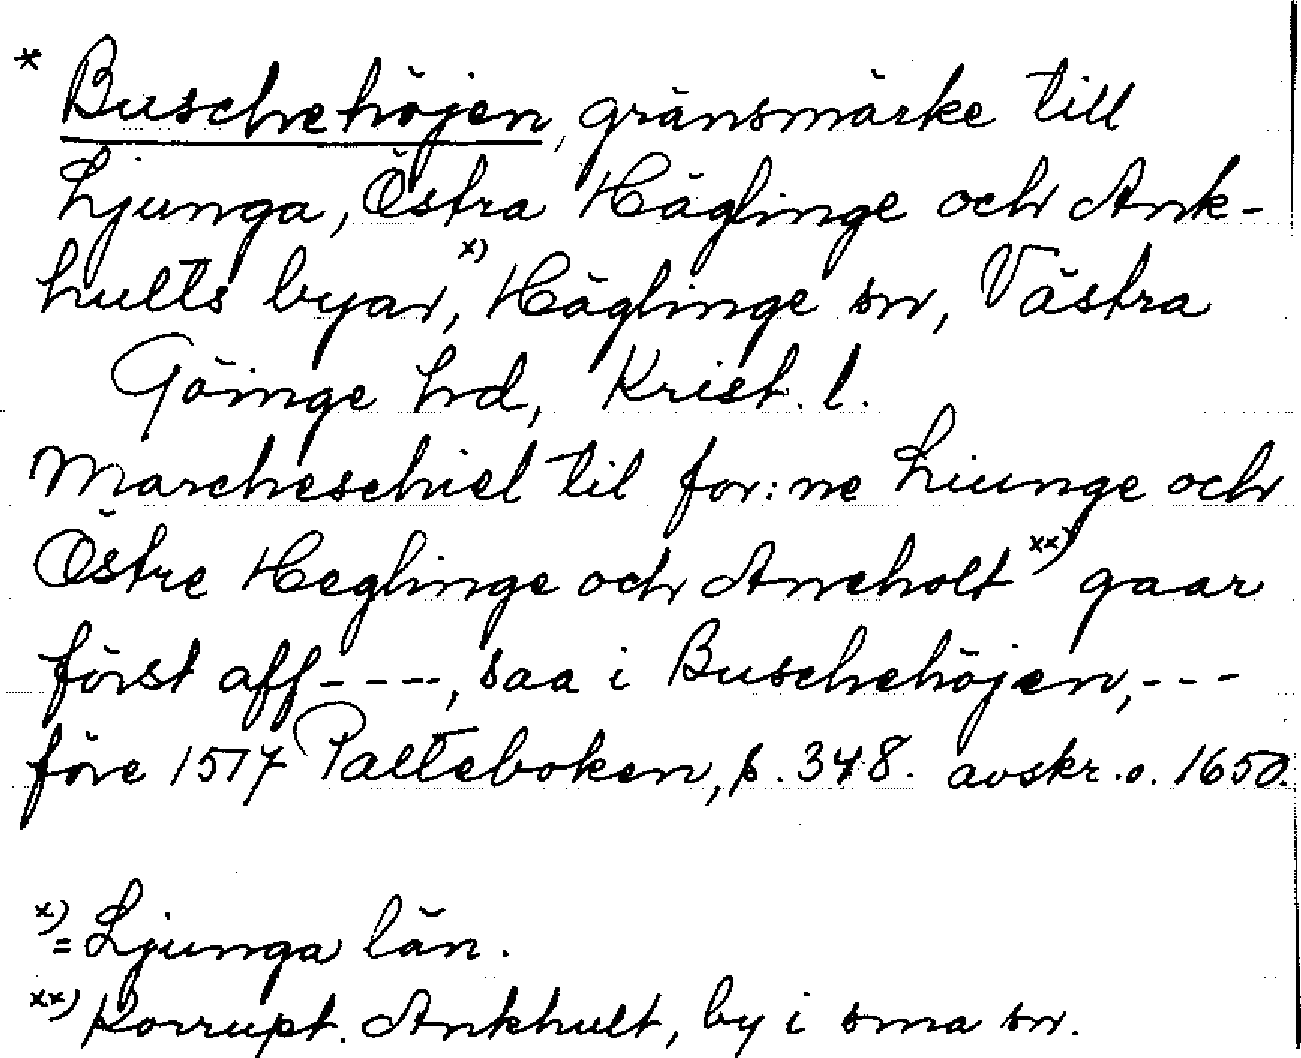 * Buschehöjen, gränsmärke till
Ljunga, Östra Häglinge och Ank-
hults byar, x) Häglinge sn, Västra
Göinge hd, Krist. l.
Marcheschiel til for:ne Liunge och
Östre Heglinge och Ancholt xx) gaar
först aff ----, saa i Buschehöjen, ---
före 1517 Palteboken, p. 348. avskr. o. 1650.
x) = Ljunga län.
xx) Korrupt. Ankhult, by i sma sn.